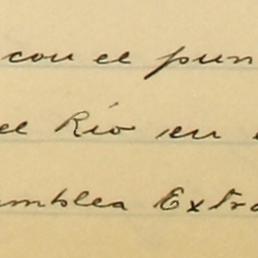 con el pun
el Río en
amblea Extra